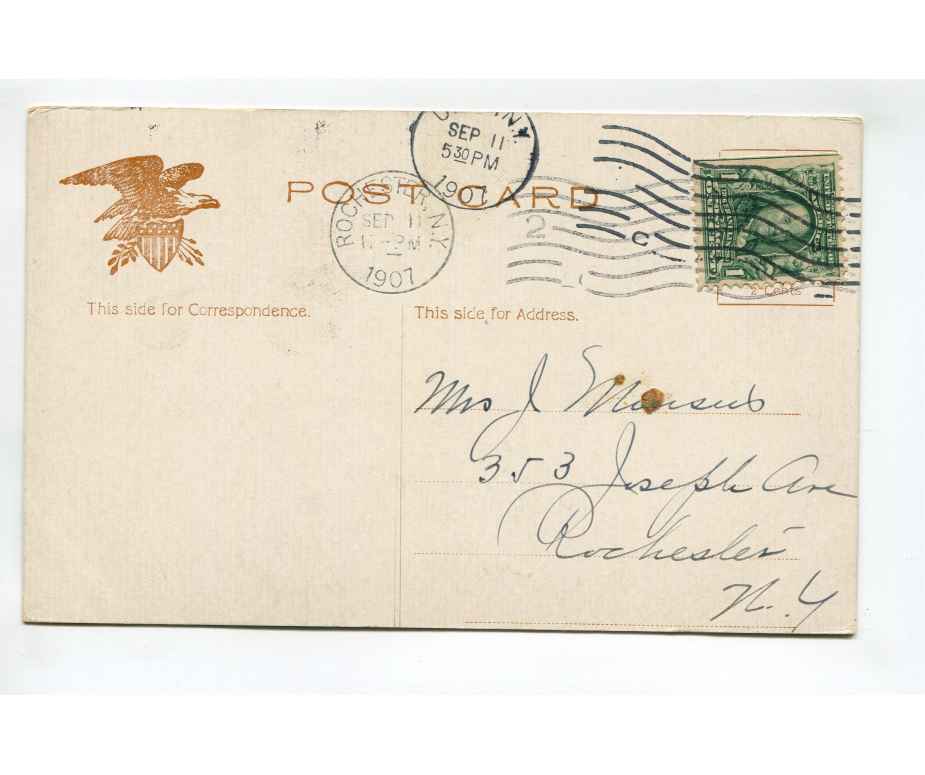 POST CARD
N.Y.
SEP 11
5 30 PM
1907
ROCHESTER, N.Y.
SEP 11
1907
2
C
1 1
2 Cents
This side for Correspondence.
This side for Address.
Mrs J
353 Joseph Ave
Rochester
N. Y